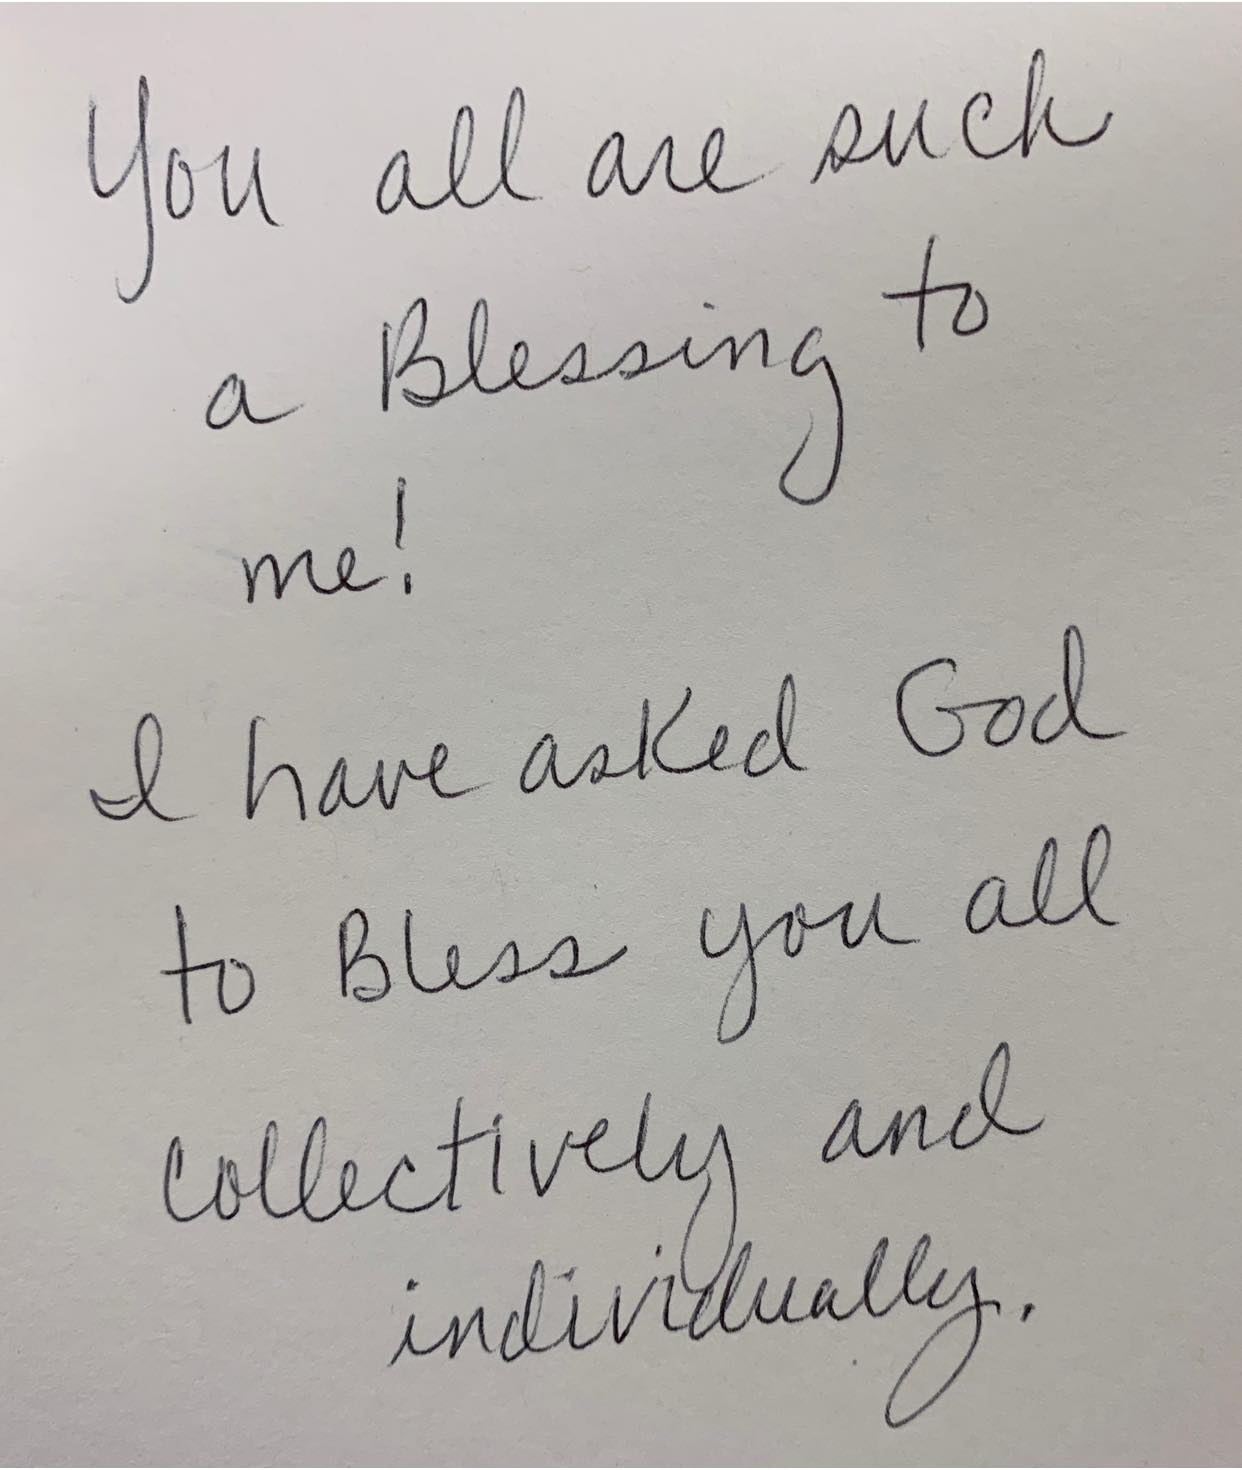 You all are such
a Blessing to
me!
I have asked God
to Bless you all
collectively and
individually.